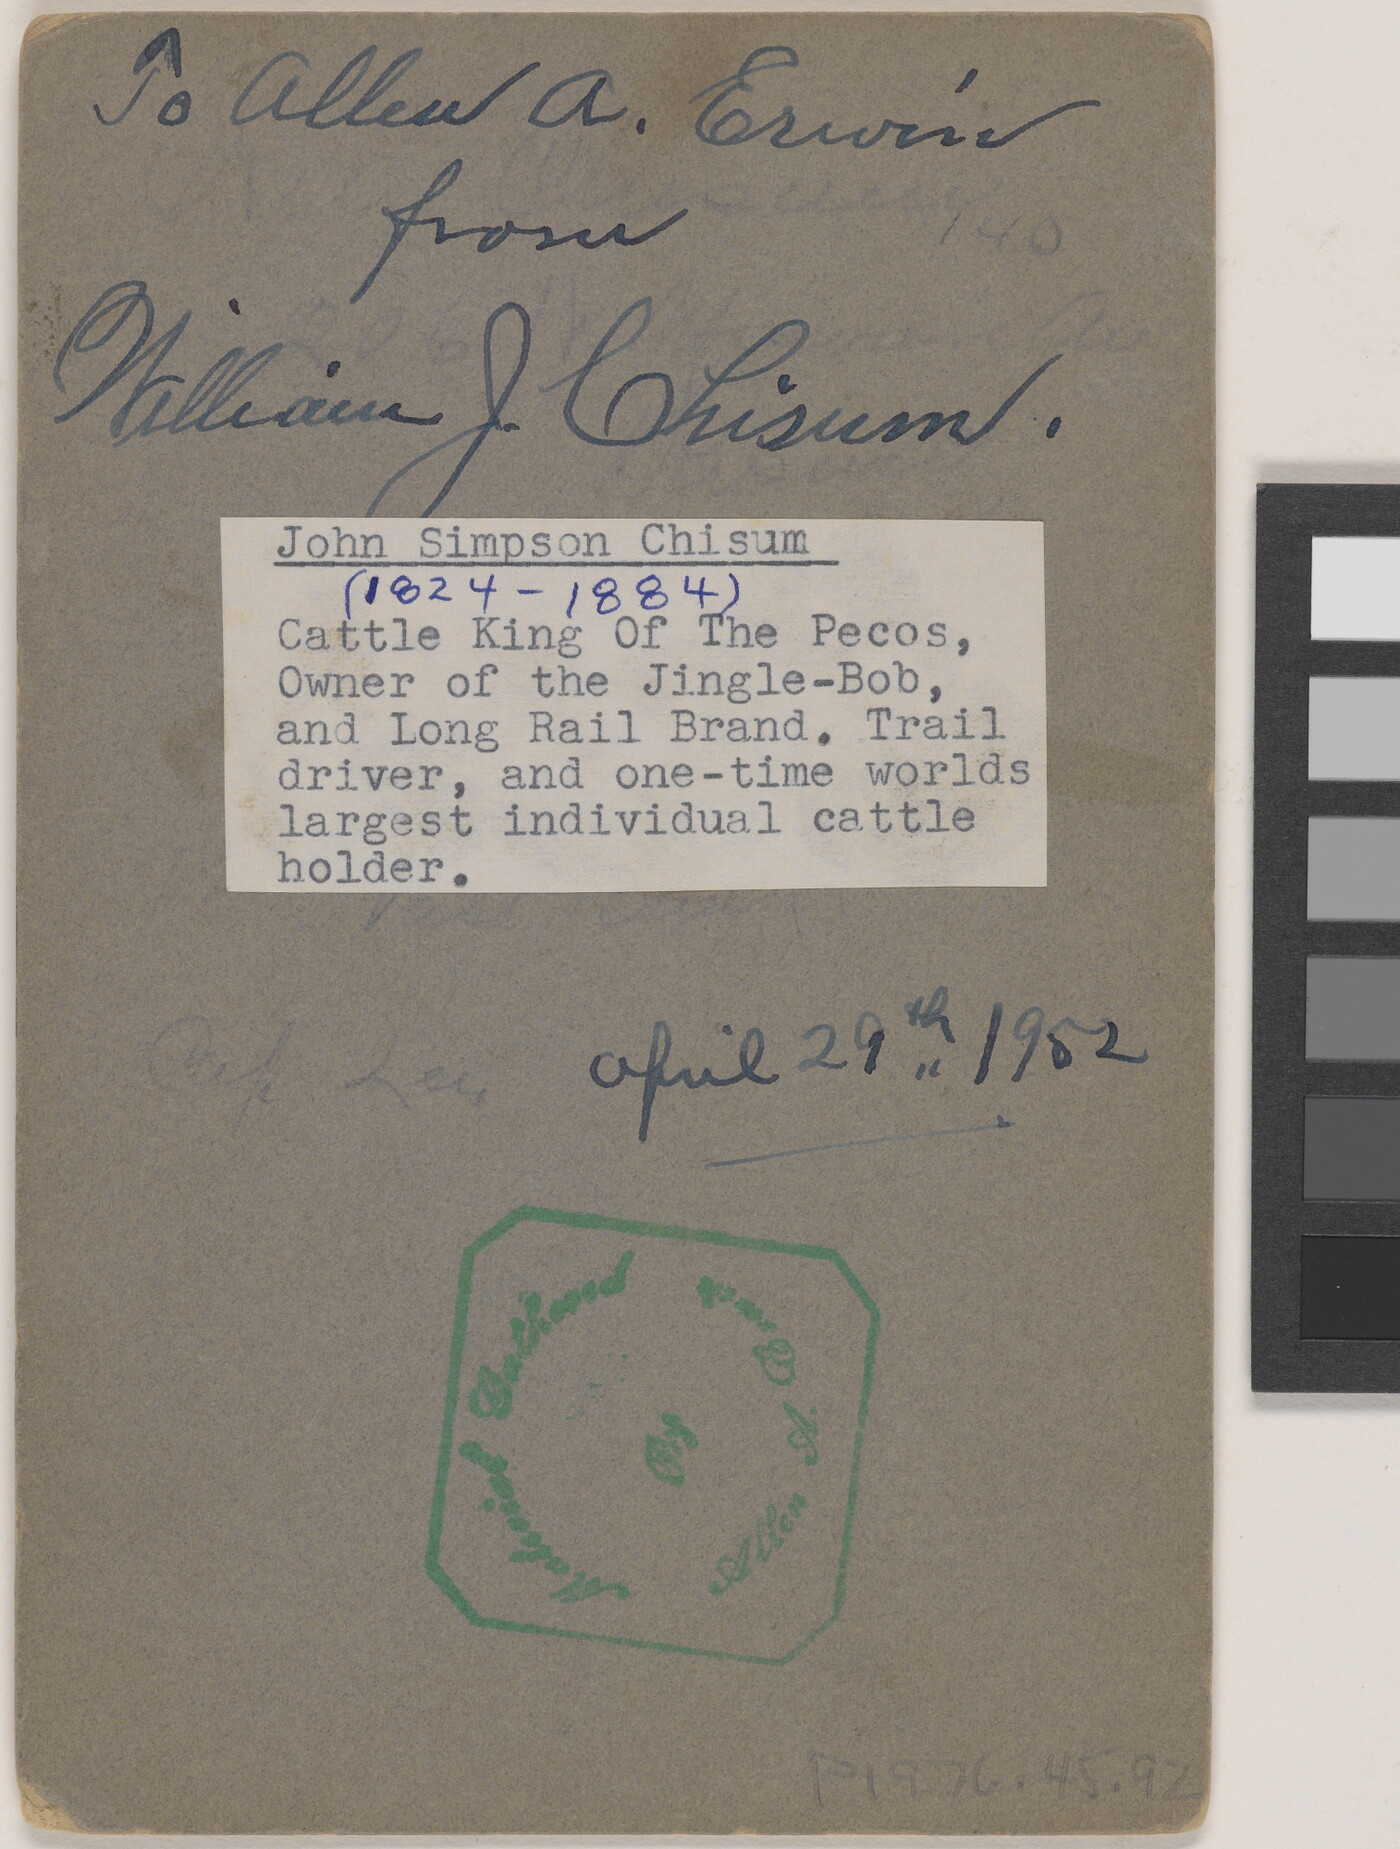 To Allen A. Erwin
from
140
William J. Chisum.
John Simpson Chisum
(1824-1884)
Cattle King Of The Pecos,
Owner of the Jingle-Bob,
and Long Rail Brand. Trail
driver, and one-time worlds
largest individual cattle
holder.
April 29th 1952
Material Gathered
By
Allen A.
P1976.45.92